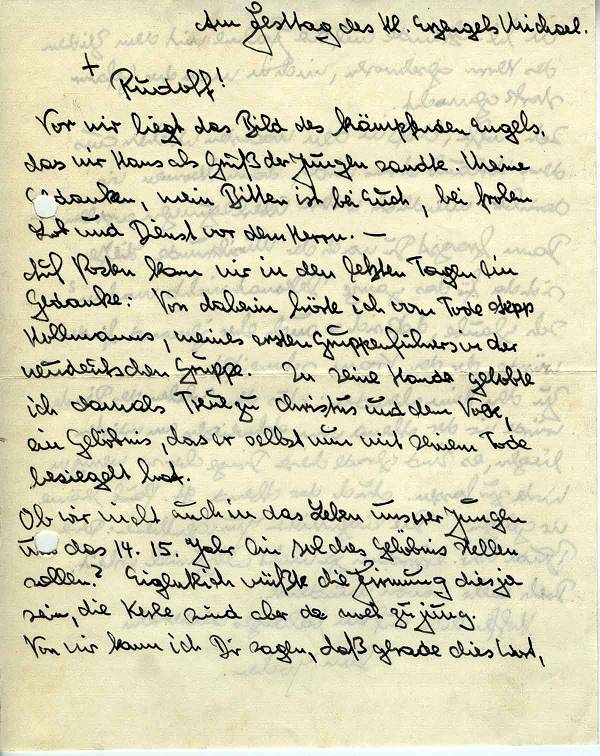 Am Festtag des Hl. Erzengels Michael.
+
Rudolf!
Vor mir liegt das Bild des kämpfenden Engels,
das mir Hans als Gruß der Jungen sandte. Meine
Gedanken, mein Bitten ist bei Euch, bei frohem
Lob und Dienst vor dem Herrn. —
Auf Posten kam mir in den letzten Tagen ein
Gedanke: Von daheim hörte ich vom Tode Sepp
Kollmanns, meines ersten Gruppenführers in der
neudeutschen Gruppe. In seine Hände gelobte
ich damals Treue zu Christus und dem Volke,
ein Gelöbnis, das er selbst nun mit seinem Tode
besiegelt hat.
Ob wir nicht auch in das Leben unserer Jungen
um das 14. 15. Jahr ein solches Gelöbnis stellen
sollen? Eigentlich müßte die Firmung dies ja
sein, die Kerle sind aber da noch zu jung.
Von mir kann ich Dir sagen, daß gerade dies Wort,